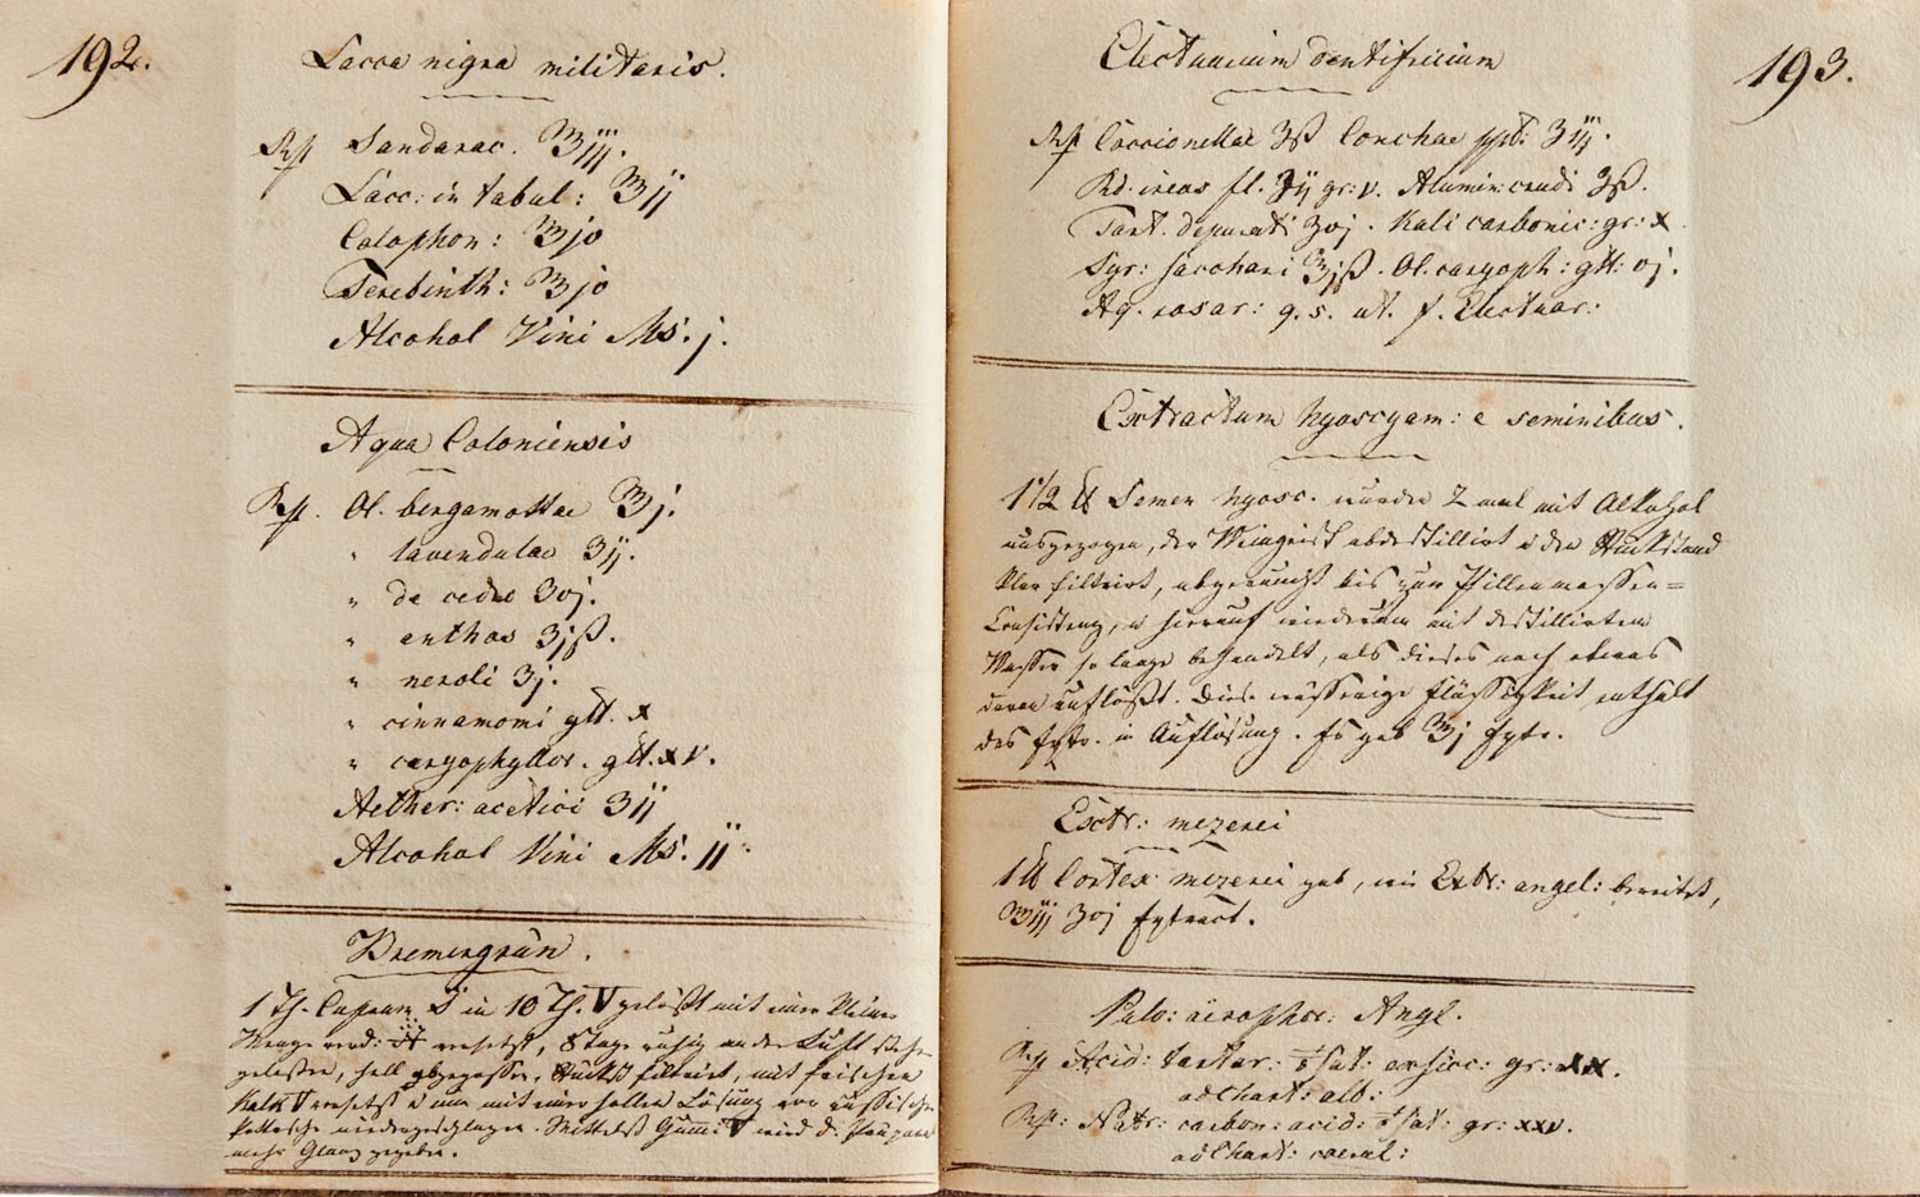 192.
Lacca nigra militaris.
Rp Sandarac. ℥iij.
Lacc: in tabul: ℥ij
Colophon: ℥jo
Terebinth: ℥jo
Alcohol Vini Ms. j.
Aqua Coloniensis
Rp. Ol. bergamottae ℥j.
" lavendulae ʒij.
" de cedro ʒoj.
" anthos ʒjß.
" neroli ʒj.
" cinnamomi gtt. x
" caryophyllor. gtt. xv.
Aether: acetici ʒij
Alcohol Vini Ms. ij.
Bremergrün.
1 Th. Cuprum in 10 Th. ▽ gelößt mit einer kleinen
Menge verd: versetzt, 8 Tage ruhig an der Luft stehen
gelaßen, hell abgegossen, filtrirt, mit frischem
Kalk ▽ versetzt u nun mit einer hellen Lösung von russischer
Pottasche niedergeschlagen. Mittelst Gumi ▽ wird d:
mehr Glanz gegeben.
193.
Electuarium dentifricium
Rp Coccionellae ʒß Conchae ppt: ʒiij.
Rd. ireos fl. ʒij gr: v. Alumin: crudi ʒß.
Tart. depurati ʒoj. Kali carbonic: gr: x.
Syr: sacchari ℥jß. Ol. caryoph: gtt: oj.
Aq. rosar: q. s. ut. f. Electuar:
Extractum hyoscyam: e seminibus.
1 1/2 ℔ Semen hyosc. wurden 2 mal mit Alkohol
ausgezogen, der Weingeist abdestillirt u den Rückstand
klar filtrirt, abgeraucht bis zur Pillenmassen=
Consistenz, u hierauf wiederum mit destillirtem
Wasser so lange behandelt, als dieses noch etwas
davon auflößt. Diese wässerige Flüssigkeit enthält
das Extr. in Auflösung. Es gab ℥j Extr.
Extr: mezerei
1 ℔ Cortex mezerei gab, wie Extr: angel: bereitet,
℥iij ʒoj Extract.
Pulv: äerophor: Angl.
Rp Acid: tartar: sat: exsicc: gr: xx.
ad Chart: alb:
Rp: Natr: carbon: acid: sat: gr: xxv.
ad Chart: coerul: